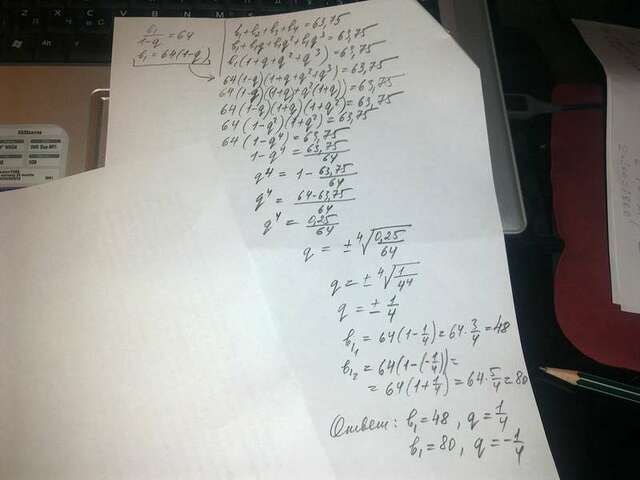 b₁/(1-q) = 64
b₁ = 64(1-q)
b₁+b₂+b₃+b₄ = 63,75
b₁+b₁q+b₁q²+b₁q³ = 63,75
b₁(1+q+q²+q³) = 63,75
64(1-q)(1+q+q²+q³) = 63,75
64(1-q)((1+q)+q²(1+q)) = 63,75
64(1-q)(1+q)(1+q²) = 63,75
64(1-q²)(1+q²) = 63,75
64(1-q⁴) = 63,75
1-q⁴ = 63,75/64
q⁴ = 1 - 63,75/64
q⁴ = (64-63,75)/64
q⁴ = 0,25/64
q = ± ⁴√(0,25/64)
q = ± ⁴√(1/4⁴)
q = ± 1/4
b₁₁ = 64(1-1/4) = 64·3/4 = 48
b₁₂ = 64(1-(-1/4)) =
= 64(1+1/4) = 64·5/4 = 80
Ответ: b₁=48, q=1/4
b₁=80, q=-1/4